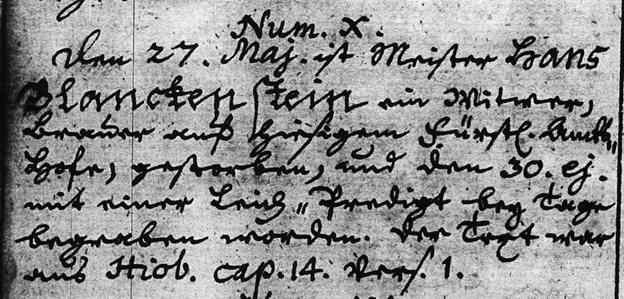 Num. X.
Den 27. Maj. ist Meister Hans
Blanckenstein ein Witwer,
Brauer auf hiesigem Fürstl. Ambts„
Hofe, gestorben, und den 30. ej.
mit einer Leich„Predigt bey Tage
begraben worden. Der Text war
aus Hiob. cap. 14. Vers. 1.